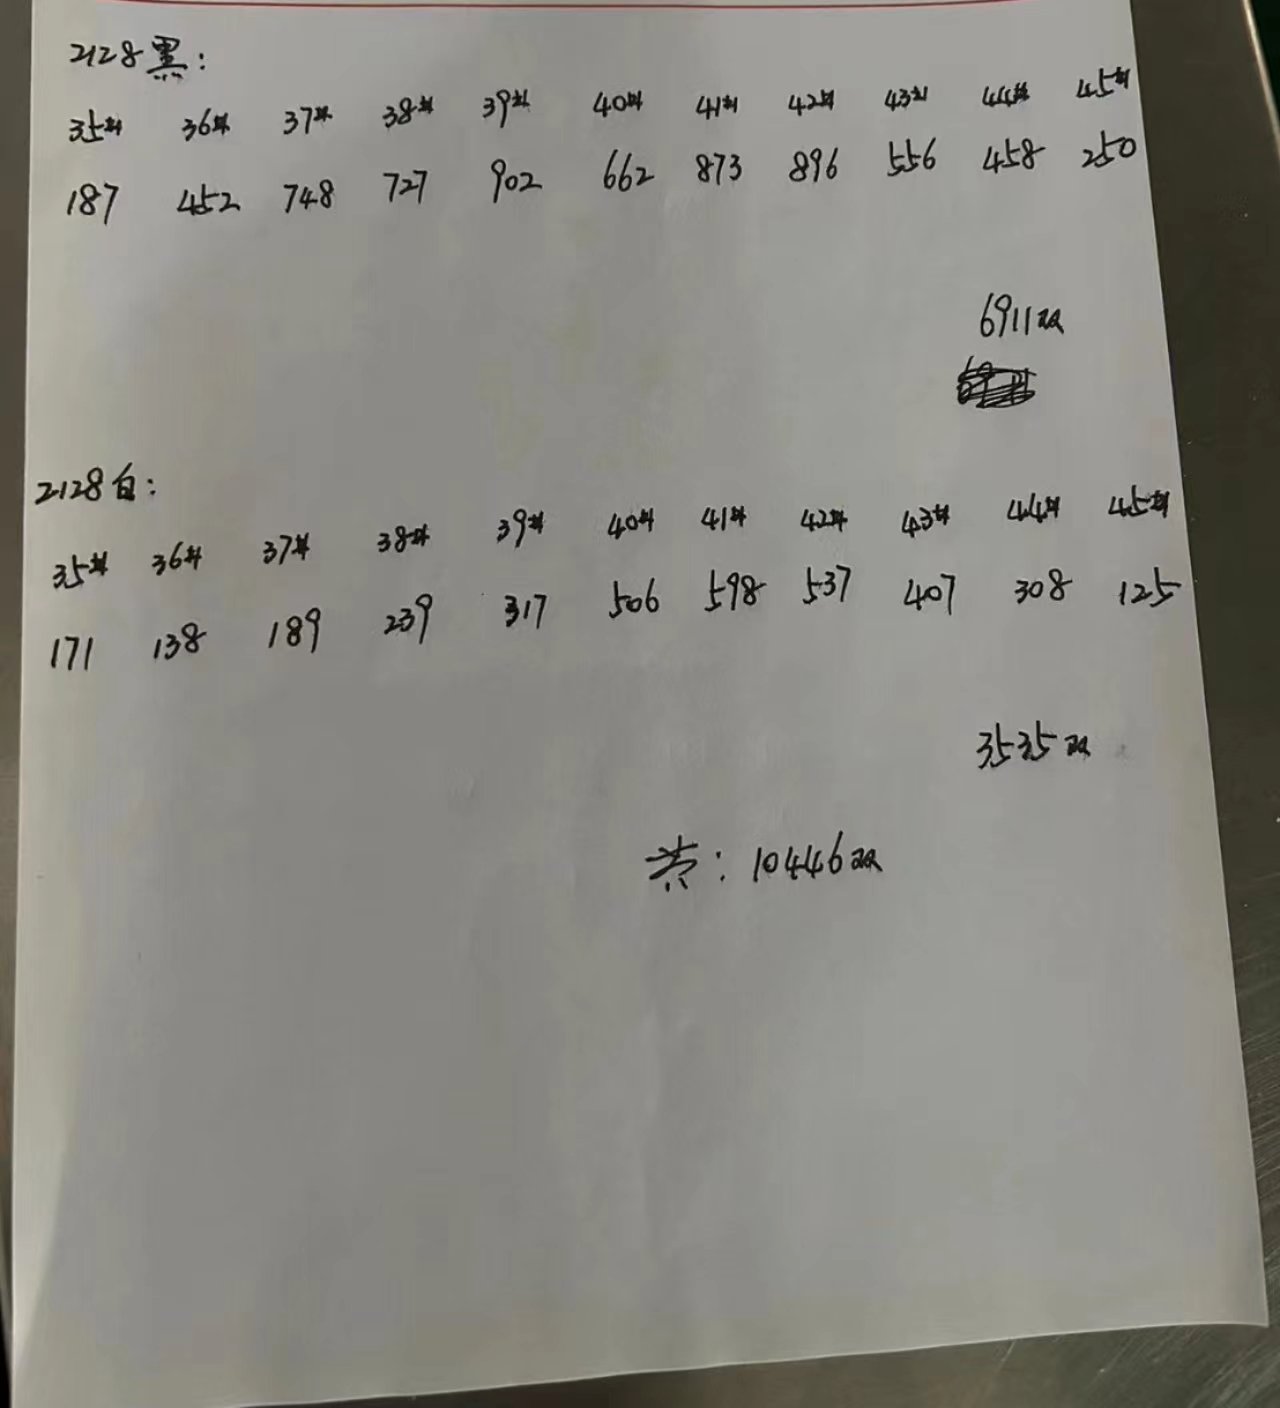 2128黑：
35# 36# 37# 38# 39# 40# 41# 42# 43# 44# 45#
187 452 748 727 902 662 873 896 556 458 250
6911双
2128白：
35# 36# 37# 38# 39# 40# 41# 42# 43# 44# 45#
171 138 189 239 317 506 598 537 407 308 125
3535双
共：10446双